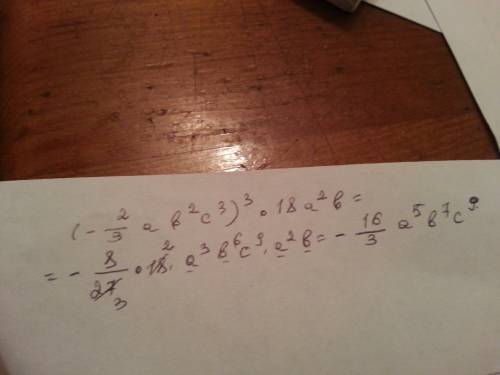 (-2/3 a b²c³)³ • 18a²b =
= - 8/27̶ 3 • 1̶8̶ 2 · a³b⁶c⁹ · a²b = - 16/3 a⁵b⁷c⁹.